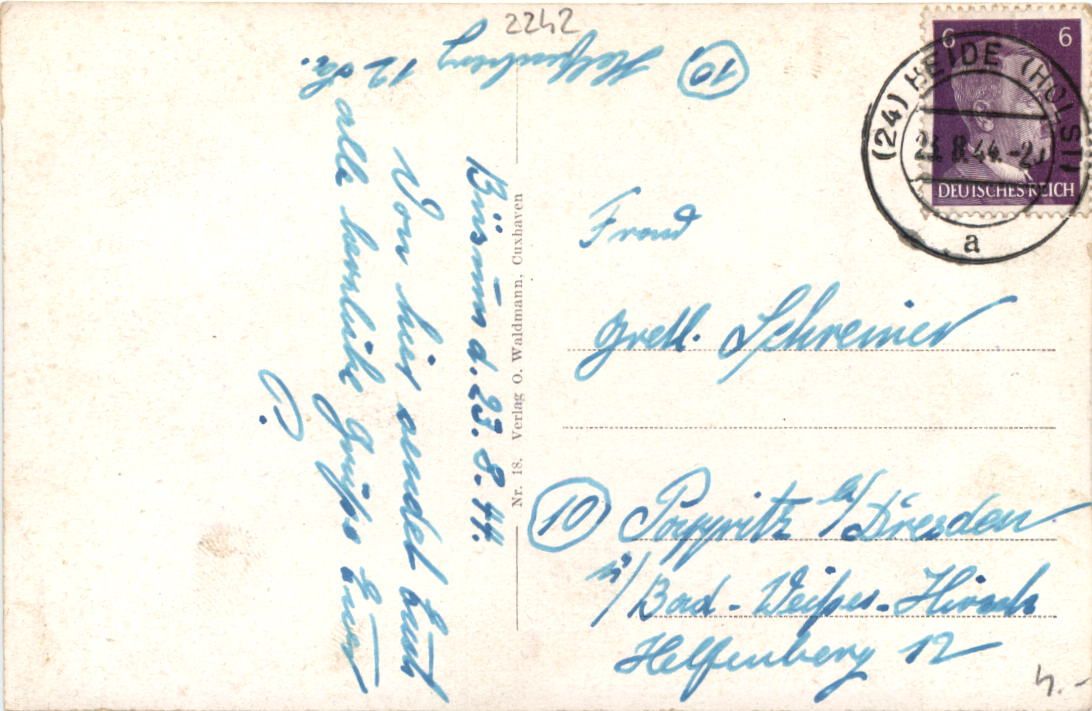 2242
(10)
Helfenberg
12 Sa.
Büsum d. 23.8.44.
Von hier sendet Euch
alle herzliche Grüße Euer
P.
Nr. 18. Verlag O. Waldmann, Cuxhaven
6 6
DEUTSCHES REICH
(24) HEIDE (HOLST)
23.8.44.-20
a
Gretl. Schreiner
(10) Poppritz b/Dresden
ü/Bad-Weißer-Hirsch
Helfenberg 12
4.-